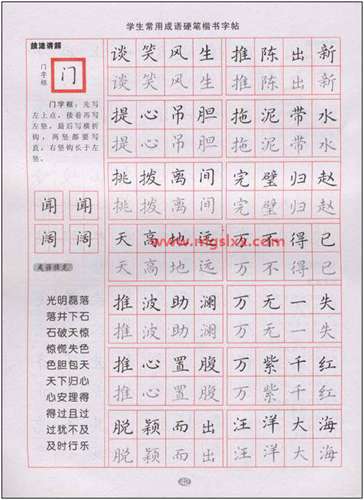 学生常用成语硬笔楷书字帖
技法讲解
门字框
门
门字框：先写
左上点，接着再写
左竖，最后写横折
钩，两竖都要写
直，右竖钩长于左
竖。
闻 闻
阔 阔
成语接龙
光明磊落
落井下石
石破天惊
惊慌失色
色胆包天
天下归心
心安理得
得过且过
过犹不及
及时行乐
谈笑风生 推陈出新
谈笑风生 推陈出新
提心吊胆 拖泥带水
提心吊胆 拖泥带水
挑拨离间 完璧归赵
挑拨离间 完璧归赵
天高地远 万不得已
www.mgslxx.com
天高地远 万不得已
推波助澜 万无一失
推波助澜 万无一失
推心置腹 万紫千红
推心置腹 万紫千红
脱颖而出 汪洋大海
脱颖而出 汪洋大海